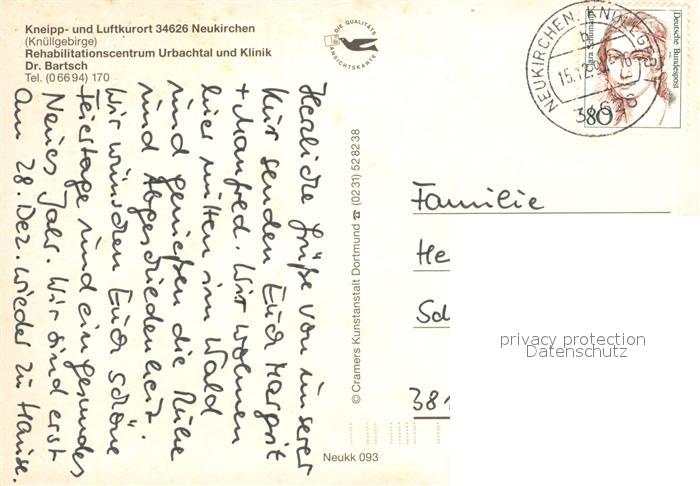 Kneipp- und Luftkurort 34626 Neukirchen
(Knüllgebirge)
Rehabilitationscentrum Urbachtal und Klinik
Dr. Bartsch
Tel. (0 66 94) 170
DIE QUALITÄTS
ANSICHTSKARTE
Herzliche Grüße von unserer
Kur senden Euch Margrit
+ Manfred. Wir wohnen
hier mitten im Wald
und genießen die Ruhe
und Abgeschiedenheit.
Wir wünschen Euch schöne
Feiertage und ein gesundes
Neues Jahr. Wir sind erst
am 28. Dez. wieder zu Hause.
© Cramers Kunstanstalt Dortmund ☎ (0231) 528238
Neukk 093
NEUKIRCHEN, KNÜLLGEB
b
15.12.
34626
Deutsche Bundespost
Clara Schumann
80
Familie
He
Sch
381
privacy protection
Datenschutz